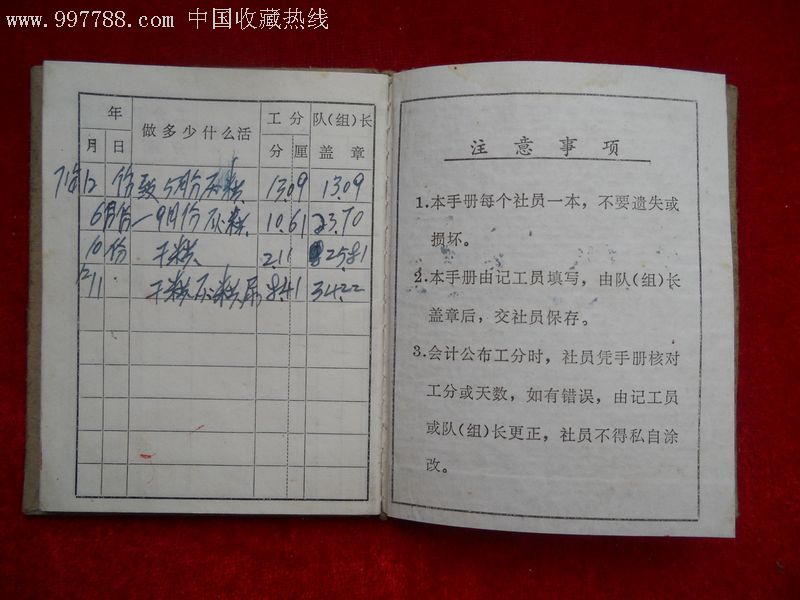 www.997788.com 中国收藏热线
年 做多少什么活 工分 队(组)长
月 日 分 厘 盖章
份 5月份灰粪 13.09 13.09
6月份—9月份灰粪 10.61 23.70
10份 干粪 2.11 25.81
干粪灰粪尿 8.41 34.22
注意事项
1.本手册每个社员一本，不要遗失或
损坏。
2.本手册由记工员填写，由队(组)长
盖章后，交社员保存。
3.会计公布工分时，社员凭手册核对
工分或天数，如有错误，由记工员
或队(组)长更正，社员不得私自涂
改。